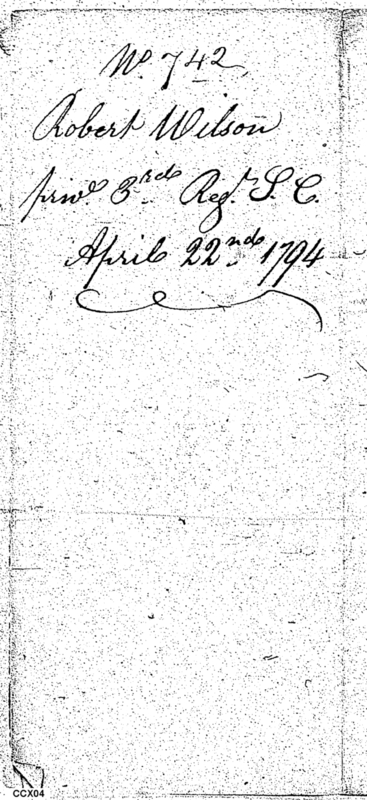 No. 742
Robert Wilson
priv.e 3rd Reg.t S. C.
April 22nd 1794
CCX04